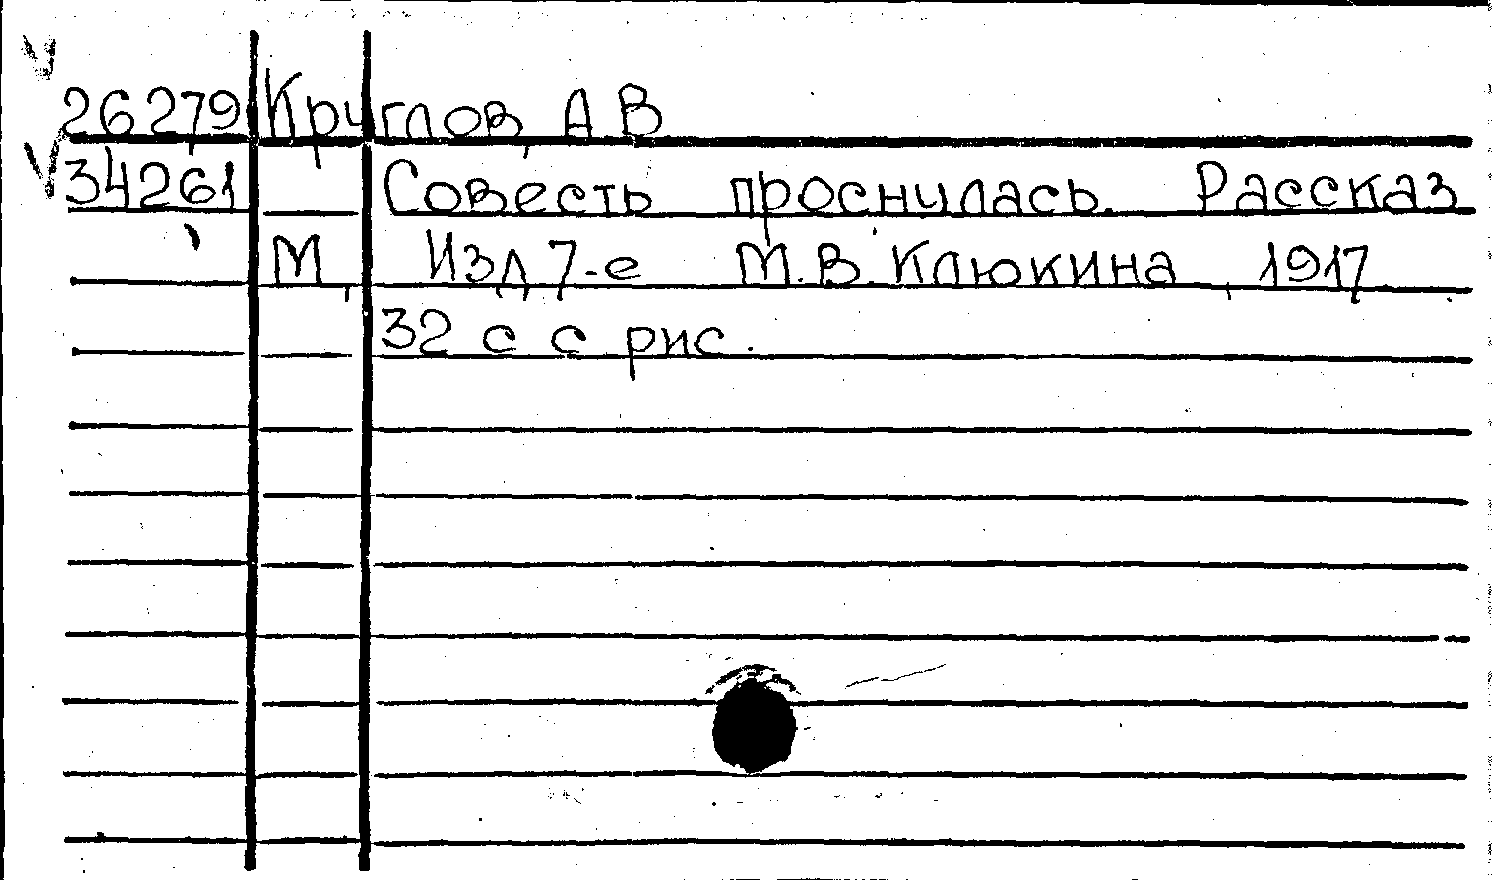 26279 Круглов, А В
34261 Совесть проснулась. Рассказ
М, Изд 7-е М.В.Клюкина, 1917.
32 с с рис.